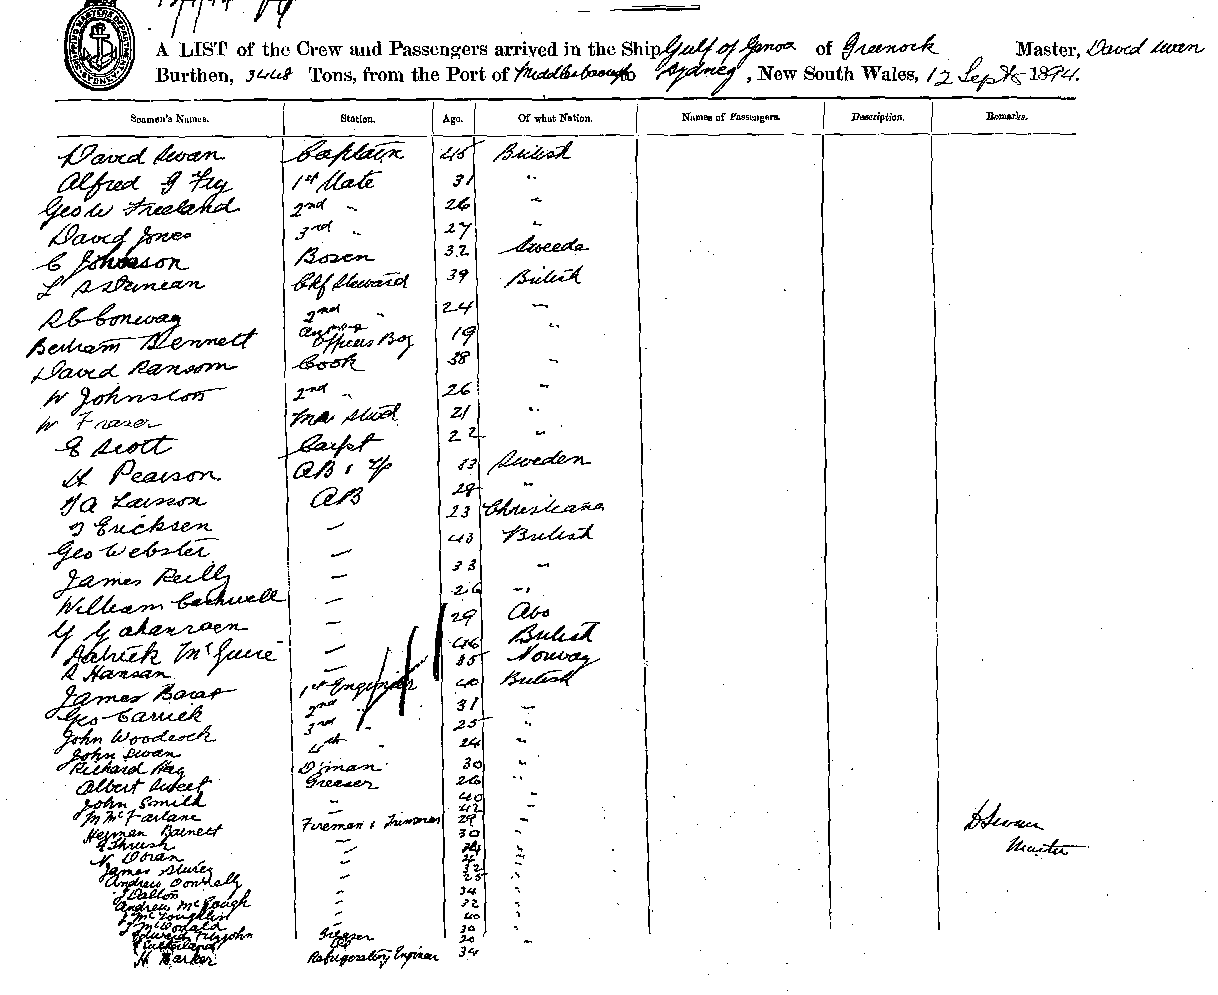 A LIST of the Crew and Passengers arrived in the Ship Gulf of Genoa of Greenock Master, David Swan
Burthen, 3448 Tons, from the Port of Middlesborough Sydney, New South Wales, 12 Septr 1894.
Seamen's Names. Station. Age. Of what Nation. Names of Passengers. Description. Remarks.
David Swan Captain 45 British
Alfred G Fry 1st Mate 31 "
Geo W Freeland 2nd " 26 "
David Jones 3rd " 27 "
C Johnson Bosen 32 Sweede
L S Duncan Chf Steward 39 British
R C Conway 2nd " 24 "
Bertram Bennett Officers Boy 19 "
David Ransom Cook 38 "
W Johnston 2nd " 26 "
W Fraser 21 "
G Scott Carpt 22 "
H Pearson AB 33 Sweden
A Larsson AB 28 "
Ericksen " 23 Christiana
Geo Webster " 43 British
James Reilly " 33 "
William Cashwell " 26 "
" 29 Abo
Patrick McGuire " 46 British
R Hansan " 35 Norway
James Barr 1st Engineer 40 British
Geo Carrick 2nd " 31 "
John Woodcock 3rd " 25 "
John Swan 4th " 24 "
Richard Hag D'man 30 "
Albert Sweet Greaser 26 "
John Smith " 40 "
M McFarlane " 42 "
Herman Barnett Fireman & Trimmers 29 "
Thrush " 30 "
N Doran "
James "
Andrew Donnelly " 25 "
Dalton " 34 "
Andrew McGough " 32 "
J McLoughlin " 40 "
J McDonald " 30 "
Edward Fitzjohn Greaser 20 "
Sutherland
H Barker Refrigerating Engineer 34
D Swan
Master